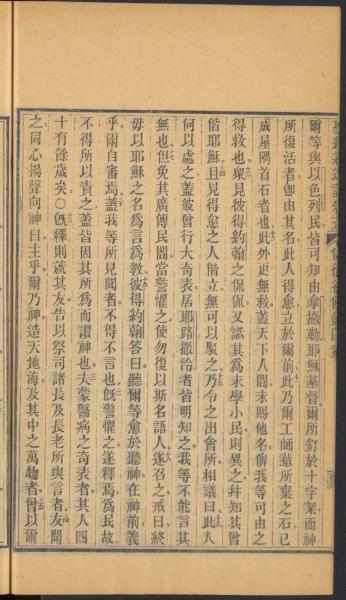 爾等與以色列民皆可知由拿撒勒耶穌基督爾所釘於十字架而神
所復活者卽由其名此人得愈立於爾前此乃爾工師輩所棄之石已
成屋隅首石者也此外更無救蓋天下人間未賜他名俾我等可由之
得救也衆見彼得約翰之侃侃又識其爲未學小民則異之幷知其曾
偕耶穌且見得愈之人偕立無可以駁之乃令之出會所相議曰此人
何以處之蓋彼曾行大奇表居耶路撒冷者皆明知之我等不能言其
無也但免其廣傳民間當警懼之使勿復以斯名語人遂召之戒曰終
毋以耶穌之名爲言爲教彼得約翰答曰聽爾等愈於聽神在神前義
乎爾自審焉蓋我等所見聞者不得不言也旣警懼之遂釋焉爲民故
不得所以責之蓋皆因其所爲而讚神也夫蒙醫病之奇表者其人四
十有餘歲矣○旣釋則就其友告以祭司諸長及長老所與言者友聞
之同心揚聲向神曰主乎爾乃神造天地海及其中之萬物者曾以爾